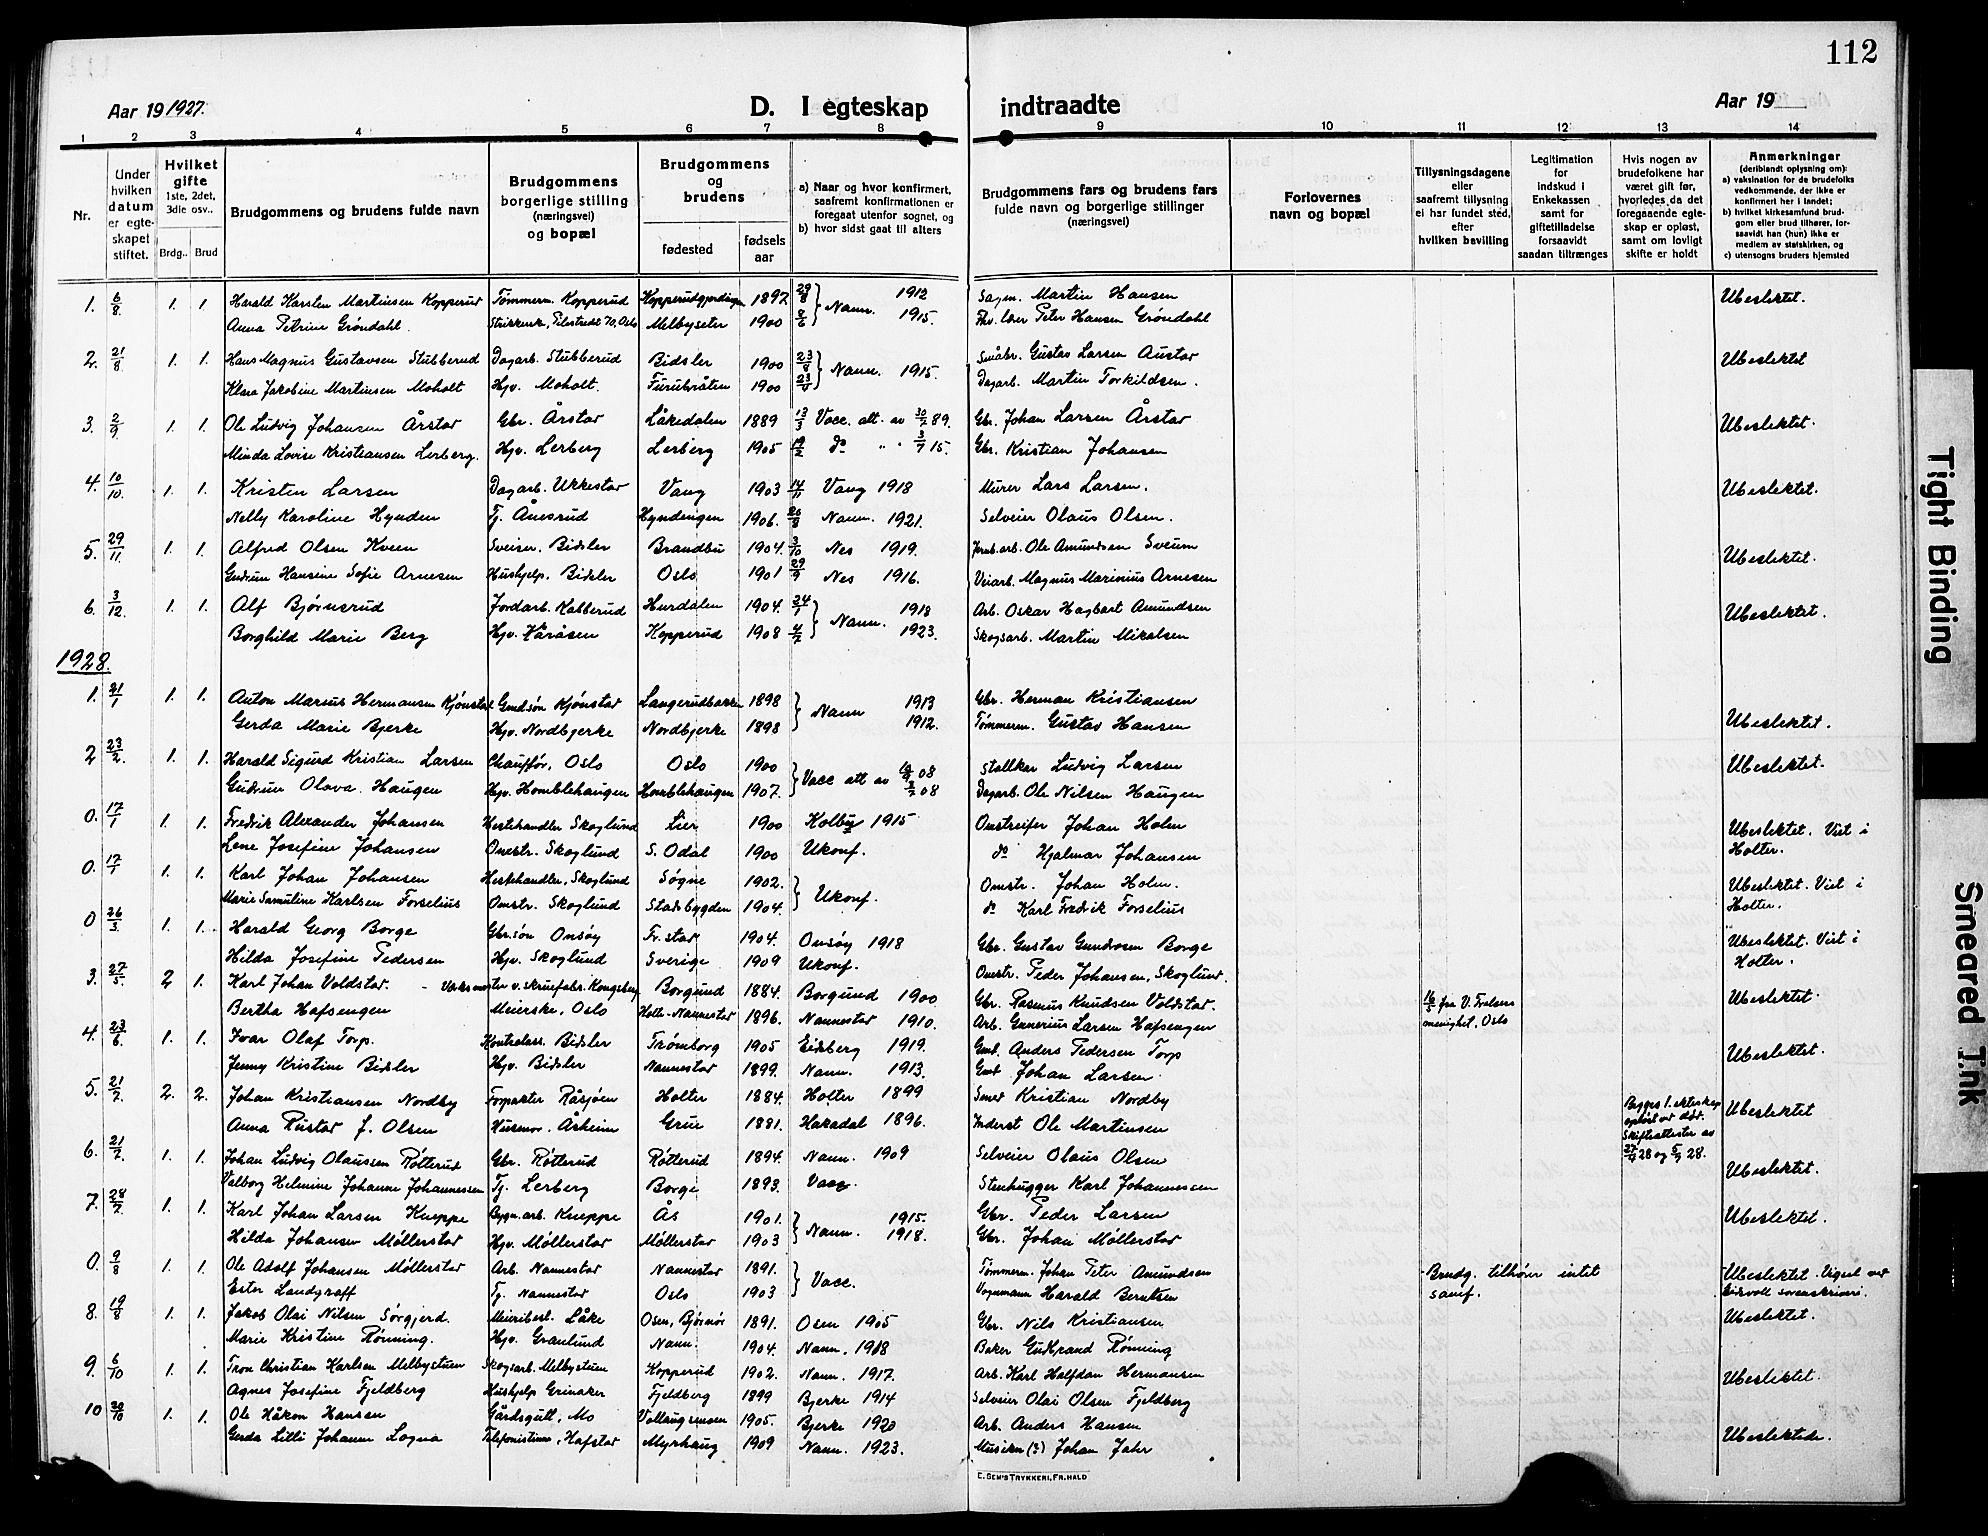 112
Aar 19 1927.
D. I egteskap indtraadte
Aar 19
1 2 3 4 5 6 7 8 9 10 11 12 13 14
Nr.
Under hvilken datum er egte- skapet stiftet.
Hvilket gifte 1ste, 2det, 3die osv..
Brdg.. Brud
Brudgommens og brudens fulde navn
Brudgommens borgerlige stilling (næringsvei) og bopæl
Brudgommens og brudens
fødested
fødsels aar
a) Naar og hvor konfirmert, saafremt konfirmationen er foregaat utenfor sognet, og
b) hvor sidst gaat til alters
Brudgommens fars og brudens fars fulde navn og borgerlige stillinger (næringsvei)
Forlovernes navn og bopæl
Tillysningsdagene eller saafremt tillysning ei har fundet sted, efter hvilken bevilling
Legitimation for indskud i Enkekassen samt for giftetilladelse forsaavidt saadan tiltrænges
Hvis nogen av brudefolkene har været gift før, hvorledes da det foregaaende egte- skap er opløst, samt om lovligt skifte er holdt
Anmerkninger (deriblandt oplysning om):
a) vaksination for de brudefolks vedkommende, der ikke er konfirmert her i landet;
b) hvilket kirkesamfund brud- gom eller brud tilhører, for- saavidt han (hun) ikke er medlem av statskirken, og
c) utensogns bruders hjemsted
1. 6/8 1. 1. Harald Karsten Martinsen Kopperud Tømmerm. Kopperud Kopperudgjerdingen 1897 29/8 Nann. 1912 Sagm. Martin Hansen Ubeslektet.
Anna Petrine Grøndahl. Strikkersk., Pilestredt 70, Oslo Melbyseter 1900 8/6 1915. Fhv. lærer Peter Hansen Grøndahl
2. 21/8 1. 1. Hans Magnus Gustavsen Stubberud Dagarb. Stubberud Bidsler 1900 23/9 Nann. 1915. Småbr. Gustav Larsen Austad Ubeslektet
Klara Jakobine Martinsen Moholt Hjv. Moholt. Furubråten 1900 23/4 Dagarb. Martin Torkildsen.
3. 2/9 1. 1. Ole Ludvig Johansen Årstad Gbr. Årstad Låkedalen 1889 13/3 Vacc. att. av 30/7 89. Gbr. Johan Larsen Årstad Ubeslektet.
Minda Lovise Kristiansen Lerberg. Hjv. Lerberg Lerberg 1905 19/2 do " " 3/7 15. Gbr. Kristian Johansen
4. 10/10. 1. 1. Kristen Larsen Dagarb. Ukkestad Vang 1903 14/11 Vang 1918 Murer Lars Larsen. Ubeslektet.
Nelly Karoline Hynden Tj. Ånesrud Hyndengen 1906. 26/8 Nann. 1921. Selveier Olaus Olsen.
5. 29/11. 1. 1. Alfred Olsen Kveen Sveiser, Bidsler Brandbu 1904. 3/10 Nes 1919. Jernb.arb. Ole Amundsen Sveum Ubeslektet.
Gudrun Hansine Sofie Arnesen Hushjelp. Bidsler Oslo 1901 29/9 Nes 1916. Veiarb. Magnus Marinius Arnesen
6. 3/12. 1. 1. Alf Bjørnsrud Jordarb. Kabberud Hurdalen 1904. 24/1 Nann. 1918 Arb. Oskar Hagbart Amundsen Ubeslektet.
Borghild Marie Berg Hjv. Håråsen Kopperud 1908 4/2 1923. Skogsarb. Martin Mikalsen
1928.
1. 21/1 1. 1. Anton Marius Hermansen Kjønstad Gmdsøn Kjønstad Langerudbakken 1898 Nann 1913 Gbr. Herman Kristiansen
Gerda Marie Bjerke Hjv. Nordbjerke Nordbjerke 1898 1912. Tømmerm. Gustav Hansen Ubeslektet.
2 23/2. 1. 1. Harald Sigurd Kristian Larsen Chauffør, Oslo Oslo 1900 Vacc att av 08 Stallkar Ludvig Larsen Ubeslektet.
Gudrun Olava Haugen Hjv. Homblehaugen Homblehaugen 1907. 3/7 08 Dagarb. Ole Nilsen Haugen
0. 17/1 1. 1. Fredrik Alexander Johansen Hestehandler Skoglund Lier 1900 Kolby 1915 Omstreifer Johan Holm Ubeslektet. Viet i Holter.
Lene Josefine Johansen Omstr. Skoglund S. Odal 1900 Ukonf. do Hjalmar Johansen
0. 17/1 1. 1. Karl Johan Johansen Hestehandler, Skoglund Søgne 1902. Ukonf. Omstr. Johan Holm. Ubeslektet. Viet i Holter.
Marie Samuline Karlsen Forselius Omstr. Skoglund Stadsbygden 1904. do Karl Fredrik Forselius
0 26/3 1. 1. Harald Georg Borge Gbr.søn Onsøy Fr.stad 1904. Onsøy 1918 Gbr. Gustav Gundersen Borge Ubeslektet. Viet i Holter.
Hilda Josefine Pedersen Hjv. Skoglund Sverige 1909 Ukonf. Omstr. Peder Johansen, Skoglund.
3. 27/5. 2 1. Karl Johan Voldstad. - Verksmester v. skruefabr. Kongsberg Borgund 1884. Borgund 1900 Gbr. Rasmus Knudsen Voldstad. 16/5 fra V. Frelsers menighet, Oslo Ubeslektet.
Bertha Hafsengen Meierske, Oslo Holte-Nannestad 1896. Nannestad 1910. Arb. Gunerius Larsen Hafsengen
4. 23/6 1. 1. Ivar Olaf Torp. Kontrolass. Bidsler Trømborg 1905 Eidsberg 1919. Gmd. Anders Pedersen Torp Ubeslektet.
Jenny Kristine Bidsler Hjv. Bidsler Nannestad 1899. Nann. 1913. Gmd Johan Larsen.
5. 21/7. 2. 2. Johan Kristiansen Nordby Forpakter Råsjøen Holter 1884. Holter 1899 Smed Kristian Nordby Begges 1. ekteskap opløst ved død. Skifteattester av 27/4 28 og 5/7 28. Ubeslektet
Anna Rustad f. Olsen Husmor. Åsheim Grue 1881. Hakadal 1896. Inderst Ole Martinsen
6. 21/7. 1. 1. Johan Ludvig Olaussen Røtterud Gbr. Røtterud Røtterud 1894. Nann. 1909 Selveier Olaus Olsen Ubeslektet.
Valborg Helmine Johanne Johannessen Tj. Lerberg Borge 1893. Vacc. Stenhugger Karl Johannessen
7. 28/7 1. 1. Karl Johan Larsen Kneppe Bygn.arb. Kneppe Ås 1901. Nann. 1915. Gbr. Peder Larsen Ubeslektet.
Hilda Johansen Møllerstad Hjv. Møllerstad Møllerstad 1903 1918. Gbr. Johan Møllerstad
0. 9/8 1. 1. Ole Adolf Johansen Møllerstad Arb. Nannestad Nannestad 1891. Vacc. Tømmerm. Johan Peter Amundsen Brudg. tilhører intet samf. Ubeslektet. Vigsel ved Eidsvoll sorenskriveri.
Ester Landgraff Tj. Nannestad Oslo 1903 Vognmann Harald Berntsen
8. 19/8 1. 1. Jakob Olai Nilsen Sørgjerd. Meieribest. Låke Osen, Bjørnør 1891. Osen 1905 Gbr. Nils Kristiansen Ubeslektet.
Marie Kristine Rønning. Hjv. Granlund Nann. 1904. Nann. 1918 Baker Gudbrand Rønning
9. 6/10 1. 1. Tron Christian Karlsen Melbystuen Skogsarb. Melbystuen Kopperud 1902. Nann. 1917. Arb. Karl Halfdan Hermansen Ubeslektet.
Agnes Josefine Fjeldberg Hushjelp Grinaker Fjeldberg 1899 Bjerke 1914 Selveier Olai Olsen Fjeldberg
10 20/10 1. 1. Ole Håkon Hansen Gårdsgutt, Mo Vollaugsmoen 1905. Bjerke 1920 Arb. Anders Hansen
Gerda Lilli Johanne Logna Telefonistinne, Hafstad Myrhaug 1909 Nann. 1923. Musiker (?) Johan Jahr Ubeslektede.
E. SEM'S TRYKKERI, FR.HALD
Tight Binding
Smeared Ink